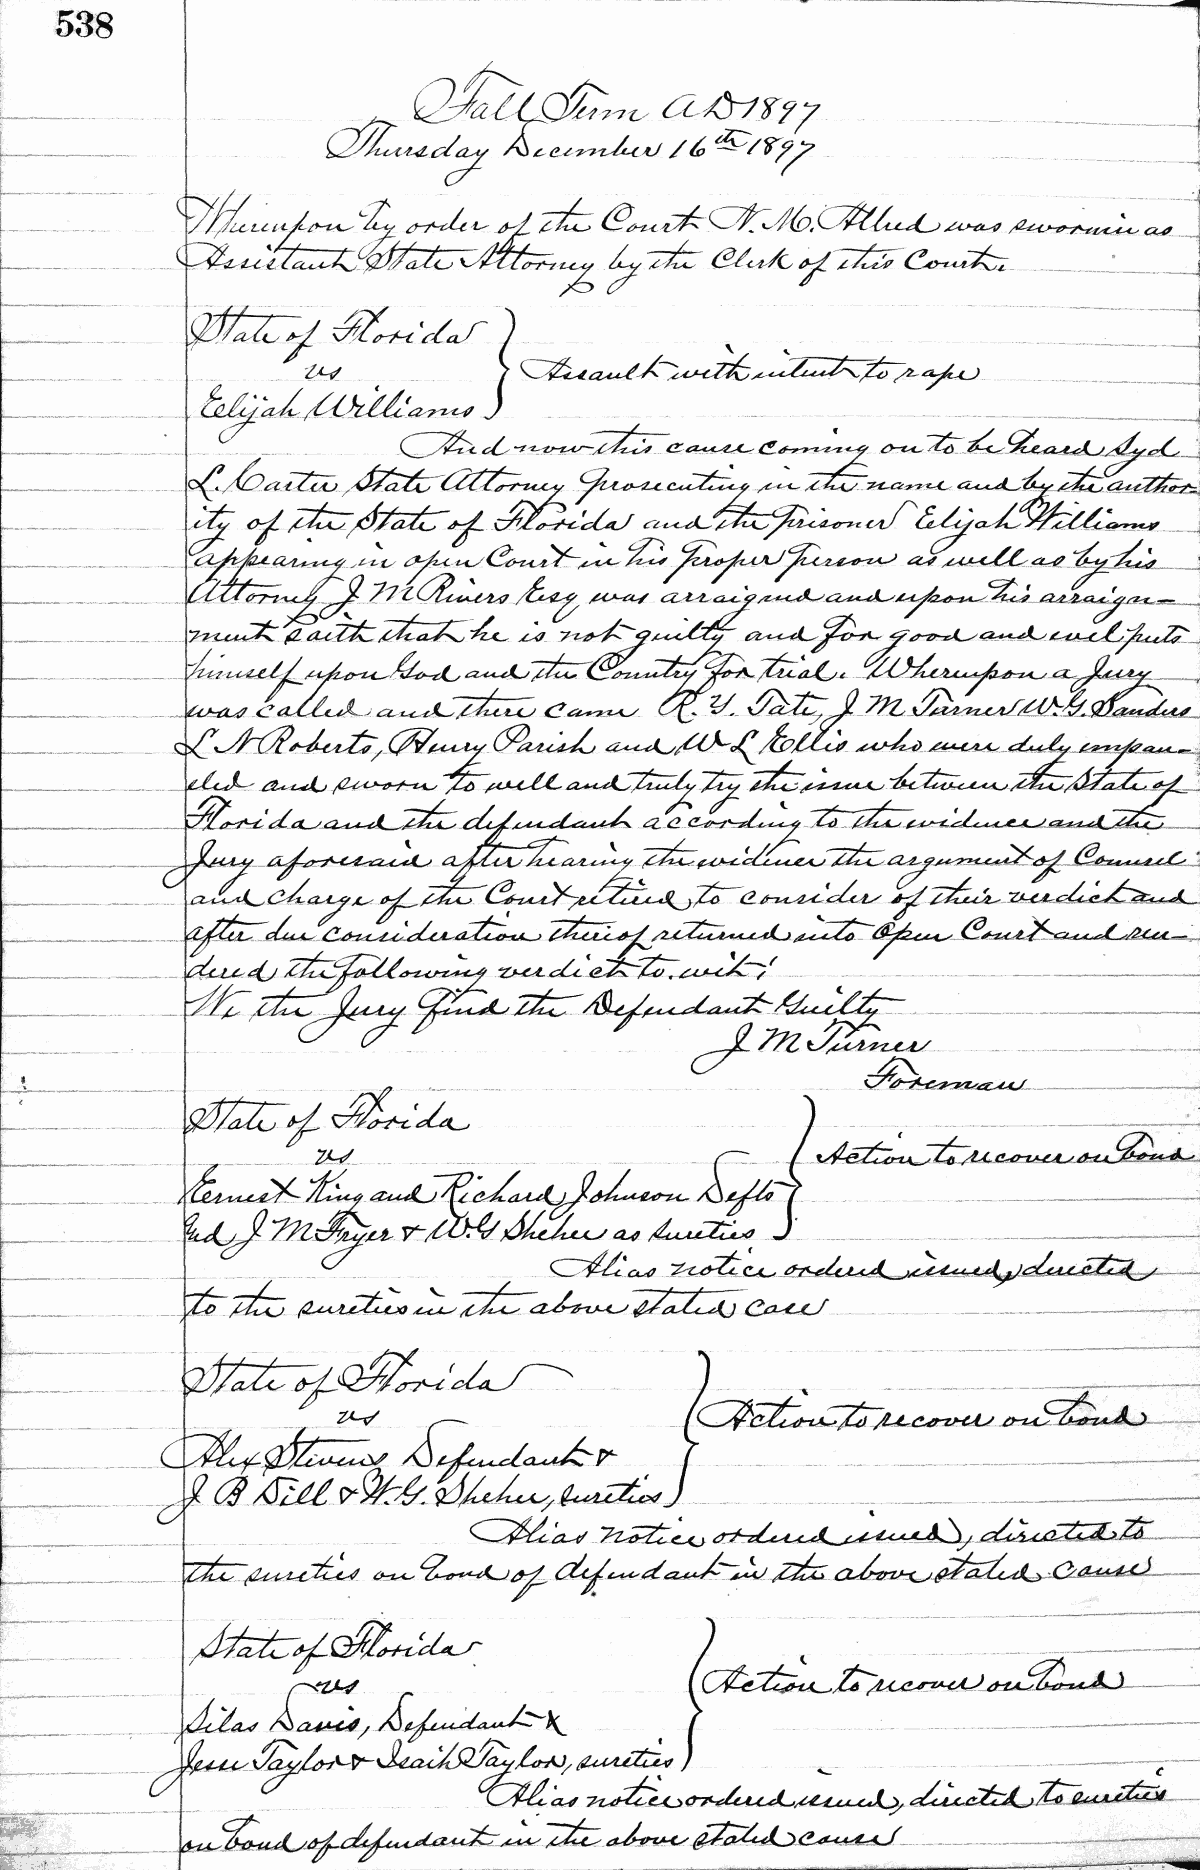 538
Fall Term A D 1897
Thursday December 16th 1897
Whereupon by order of the Court N. M. Allred was sworn in as
Assistant State Attorney by the Clerk of this Court.
State of Florida
vs
Elijah Williams
Assault with intent to rape
And now this cause coming on to be heard Syd
L. Carter State Attorney prosecuting in the name and by the author-
ity of the State of Florida and the prisoner Elijah Williams
appearing in open Court in his proper person as well as by his
Attorney J M Rivers Esq was arraigned and upon his arraign-
ment saith that he is not guilty and for good and evel puts
himself upon God and the Country for trial. Whereupon a Jury
was called and there came R. Y. Tate, J M Turner W. G. Sanders
L N Roberts, Henry Parish and W L Ellis who were duly empan-
eled and sworn to well and truly try the issue between the State of
Florida and the defendant according to the evidence and the
Jury aforesaid after hearing the evidence the argument of Counsel
and charge of the Court retired to consider of their verdict and
after due consideration thereof returned into Open Court and ren-
dered the following verdict to. wit;
We the Jury find the Defendant Guilty
J M Turner
Foreman
State of Florida
vs
Ernest King and Richard Johnson Defts
and J M Fryer & W. G Sheher as sureties
Action to recover on bond
Alias notice ordered issued, directed
to the sureties in the above stated case
State of Florida
vs
Alex Stivens Defendant &
J B Dill & W. G. Sheher, sureties
Action to recover on bond
Alias notice ordered issued, directed to
the sureties on bond of defendant in the above stated cause
State of Florida
vs
Silas Davis, Defendant &
Jesse Taylor & Isaih Taylor, sureties
Action to recover on bond
Alias notice ordered issued, directed to sureties
on bond of defendant in the above stated cause